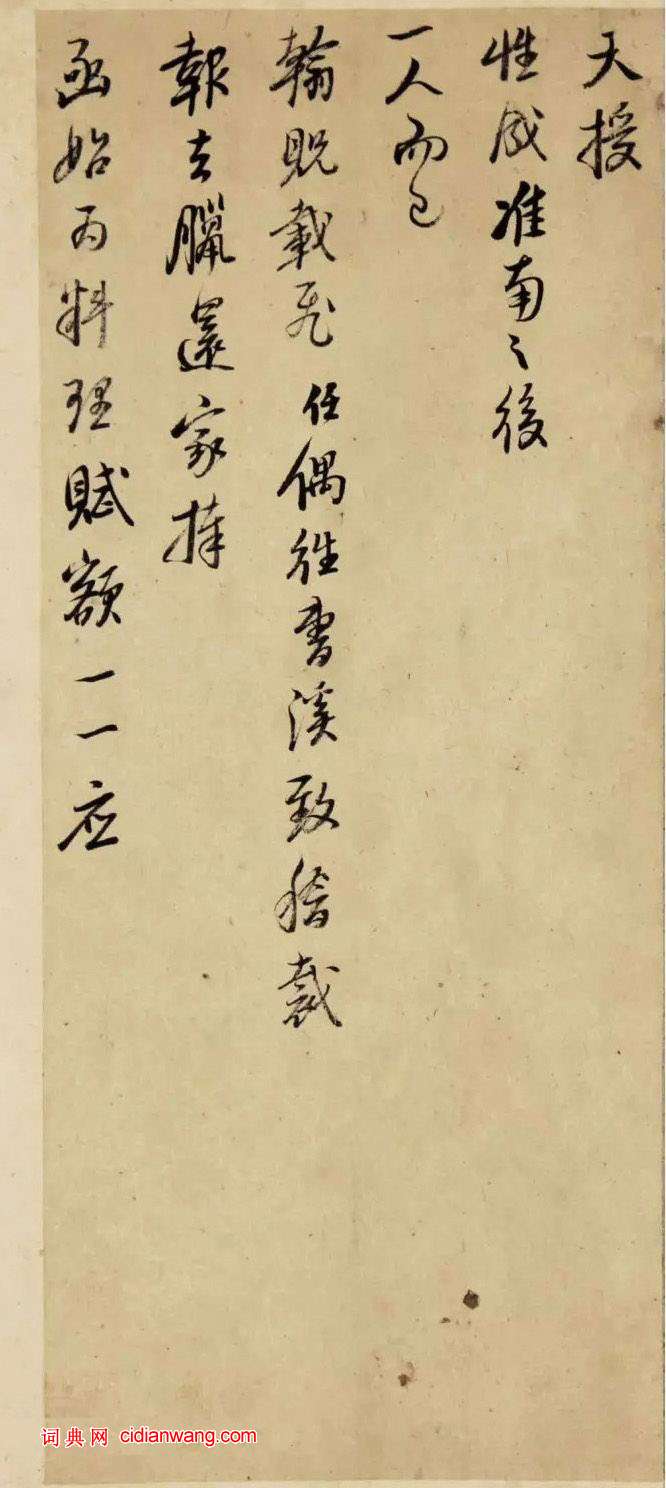 天授
性成淮南之後
一人而已
翰貺載飛任偶往曹溪致稽裁
報去臘還家捧
函始為料理賦額一一应
词典网 cidianwang.com